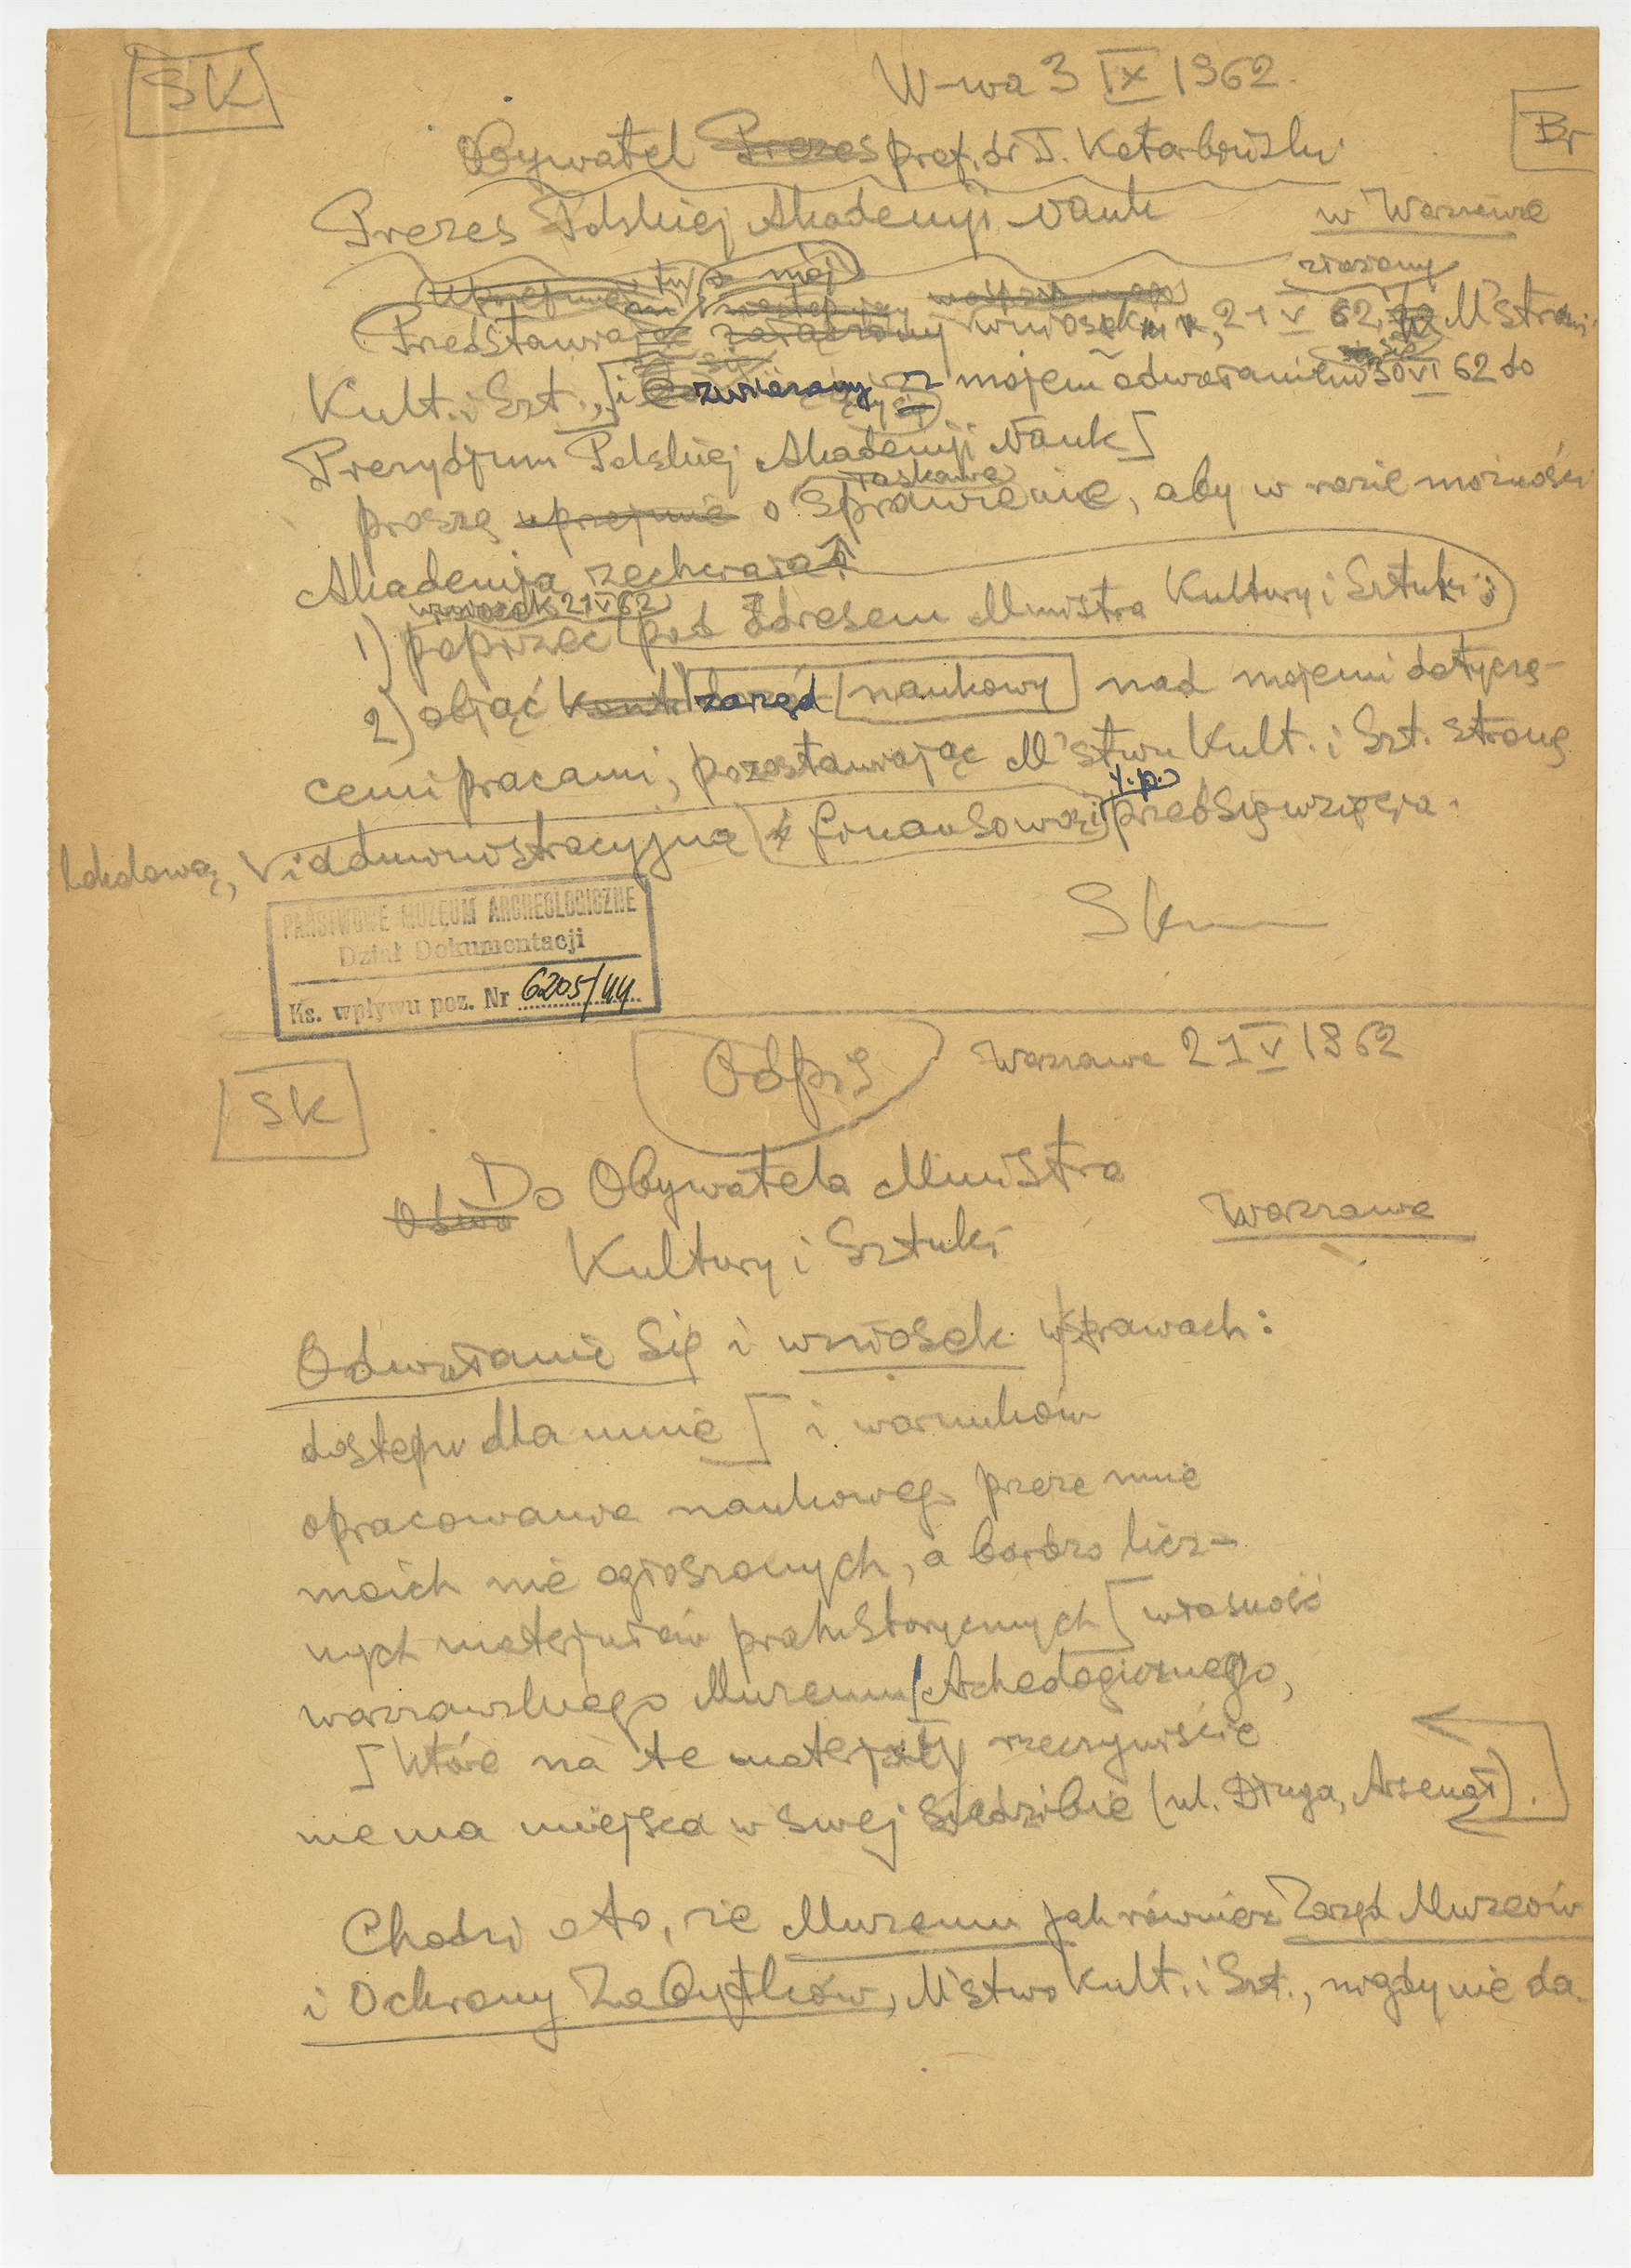 SK
W-wa 3 IX 1962.
Br
Obywatel Prezes prof. dr T. Kotarbiński
Prezes Polskiej Akademji Nauk
w Warszawie
mój
złożony
Przedstawiając załączony wniosek 21 V 62, do M'stra
Kult. i Szt., [i związany z mojem odwołaniem się 30 VI 62 do
Prezydjum Polskiej Akademji Nauk]
łaskawe
proszę uprzejmie o sprawienie, aby w razie możności
Akademja zechciała
wniosek 21 V 62
1) poprzeć pod adresem Ministra Kultury i Sztuki;
2) objąć zarząd naukowy nad mojemi dotyczą-
cemi pracami, pozostawiając M'stwu Kult. i Szt. stronę
t. p.
lokalową, i administracyjną i finansową przedsięwzięcia.
SK
PAŃSTWOWE MUZEUM ARCHEOLOGICZNE
Dział Dokumentacji
Ks. wpływu poz. Nr 6205/44
SK
Odpis
Warszawa 21 V 1962
Odwo Do Obywatela Ministra
Kultury i Sztuki
Warszawa
Odwołanie się i wniosek w sprawach:
dostępu dla mnie [i warunków
opracowania naukowego przeze mnie
moich nie ogłoszonych, a bardzo licz-
nych materjałów prahistorycznych [własność
warszawskiego Muzeum Archeologicznego,
[które na te materjały rzeczywiście
nie ma miejsca w swej siedzibie (ul. Długa, Arsenał).
Chodzi o to, że Muzeum jak również Zarząd Muzeów
i Ochrony Zabytków, M'stwo Kult. i Szt., nigdy nie da-